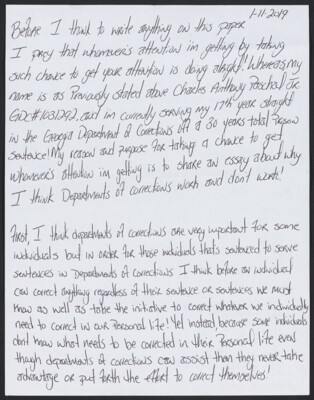 1-11-2019
Before I think to write anything on this paper
I prey that whomever's attention im getting by taking
such chance to get your attention is doing alright! Whereas my
name is as Previously stated above Charles Anthony Paschal Jr.
GDC# 1031292, and im currently serving my 17th year straight
in the Georgia Department of Corrections off a 30 years total Prison
sentence! My reason and purpose for taking a chance to get
whomever's attention im getting is to share an essay about why
I think Departments of corrections work and dont work!
First, I think departments of corrections are very important for some
individuals but in order for those individuals that's sentenced to serve
sentences in Departments of Corrections I think before an individual
can correct anything regardless of their sentence or sentences we must
know as well as take the initiative to correct whatever we individually
need to correct in our Personal life! Yet instead because some individuals
dont know what needs to be corrected in their Personal life even
though departments of corrections can assist them they never take
advantage or put forth the effort to correct themselves!